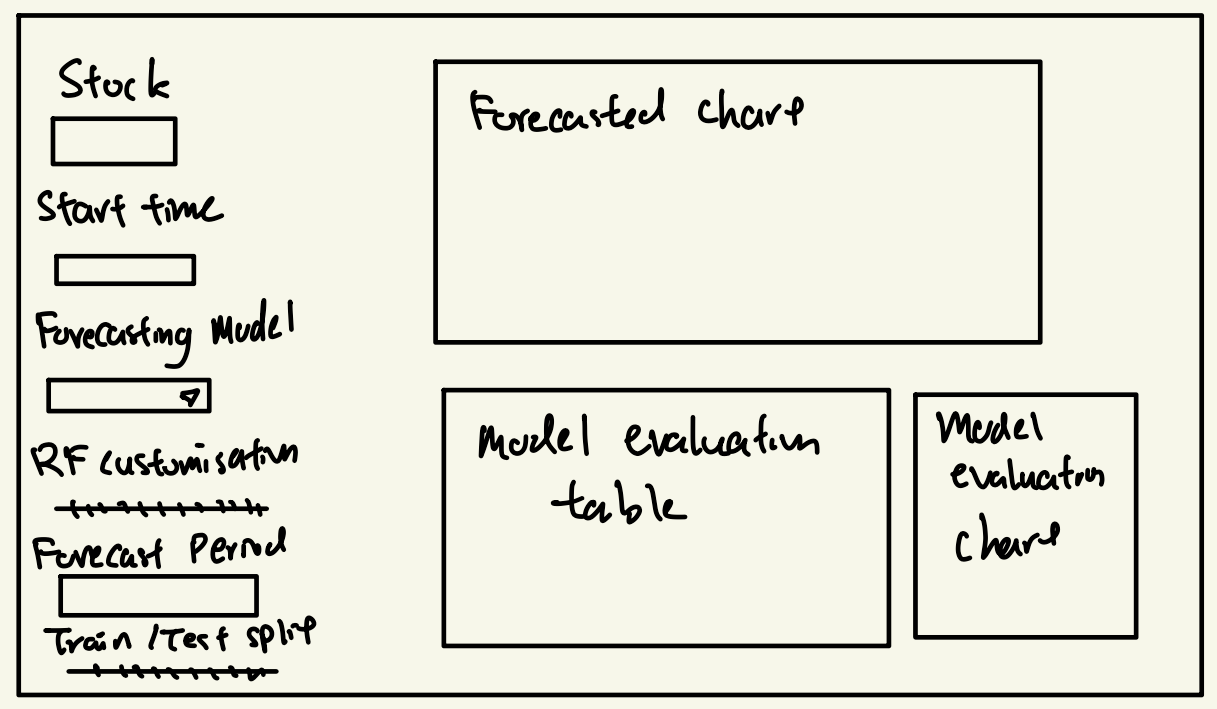 Stock
Start time
Forecasting Model
RF customisation
Forecast Period
Train / Test split
Forecasted chart
Model evaluation
table
Model
evaluation
chart